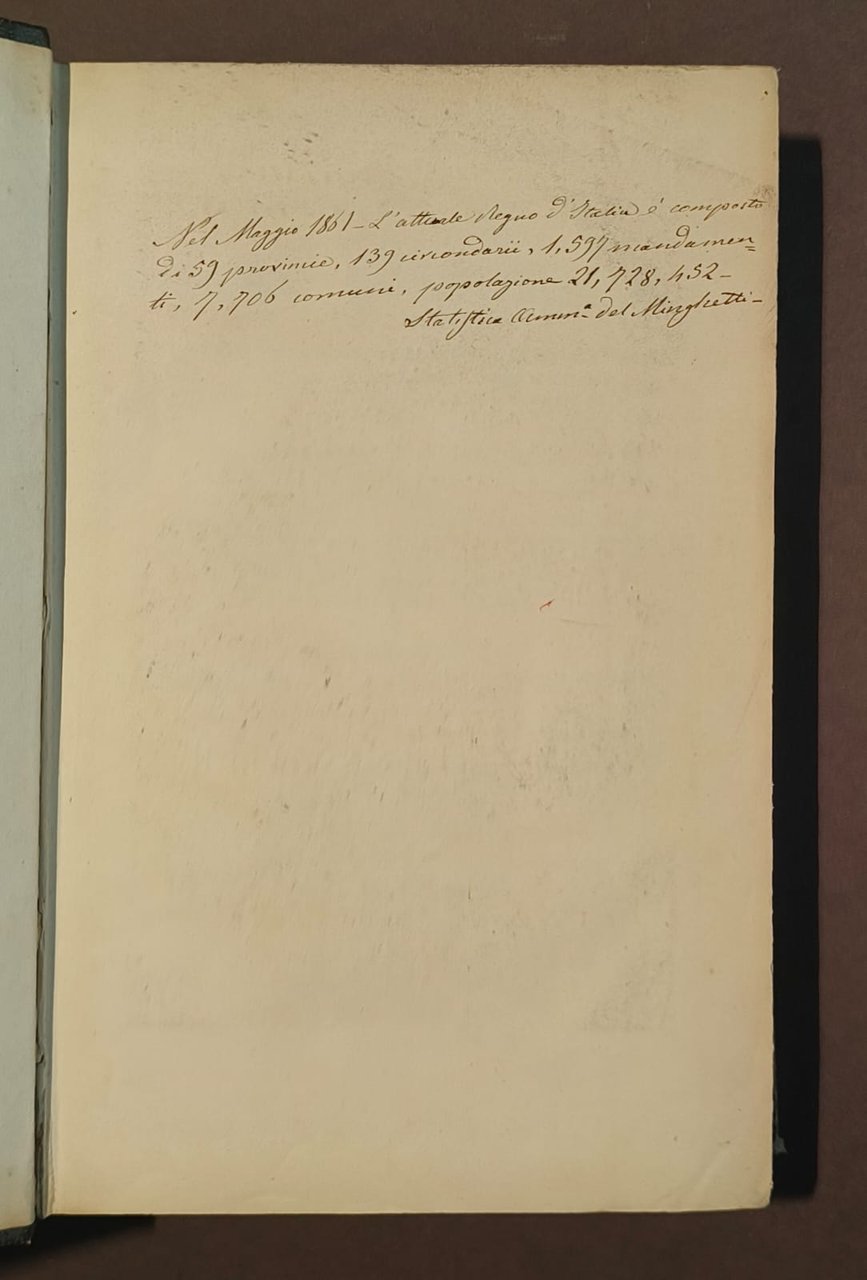 Nel Maggio 1861 – L'attuale Regno d'Italia é composto
di 59 provincie, 139 circondarii, 1,597 mandamen=
ti, 7,706 comuni, popolazione 21,728,452 –
Statistica Ammn.ª del Minghetti –